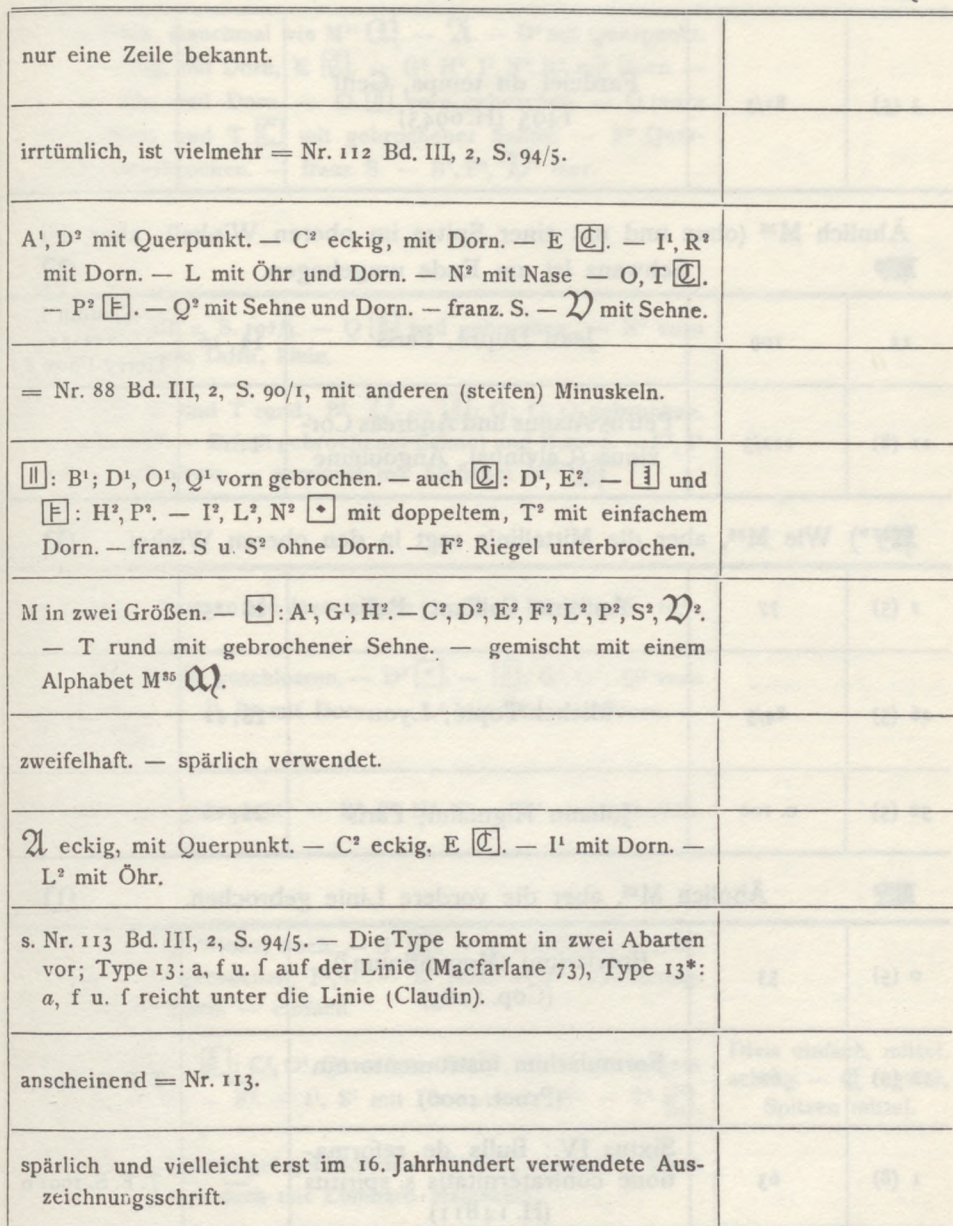 nur eine Zeile bekannt.
irrtümlich, ist vielmehr = Nr. 112 Bd. III, 2, S. 94/5.
A¹, D² mit Querpunkt. — C² eckig, mit Dorn. — E ℭ. — I¹, R²
mit Dorn. — L mit Öhr und Dorn. — N² mit Nase — O, T ℭ.
— P² F. — Q² mit Sehne und Dorn. — franz. S. — 𝔇 mit Sehne.
= Nr. 88 Bd. III, 2, S. 90/1, mit anderen (steifen) Minuskeln.
‖: B¹; D¹, O¹, Q¹ vorn gebrochen. — auch ℭ: D¹, E². — und
F: H², P². — I², L², N² mit doppeltem, T² mit einfachem
Dorn. — franz. S u. S² ohne Dorn. — F² Riegel unterbrochen.
M in zwei Größen. — : A¹, G¹, H². — C², D², E², F², L², P², S², 𝔇².
— T rund mit gebrochener Sehne. — gemischt mit einem
Alphabet M³⁵ 𝔐.
zweifelhaft. — spärlich verwendet.
𝔄 eckig, mit Querpunkt. — C² eckig, E ℭ. — I¹ mit Dorn. —
L² mit Öhr.
s. Nr. 113 Bd. III, 2, S. 94/5. — Die Type kommt in zwei Abarten
vor; Type 13: a, f u. ſ auf der Linie (Macfarlane 73), Type 13*:
a, f u. ſ reicht unter die Linie (Claudin).
anscheinend = Nr. 113.
spärlich und vielleicht erst im 16. Jahrhundert verwendete Aus-
zeichnungsschrift.